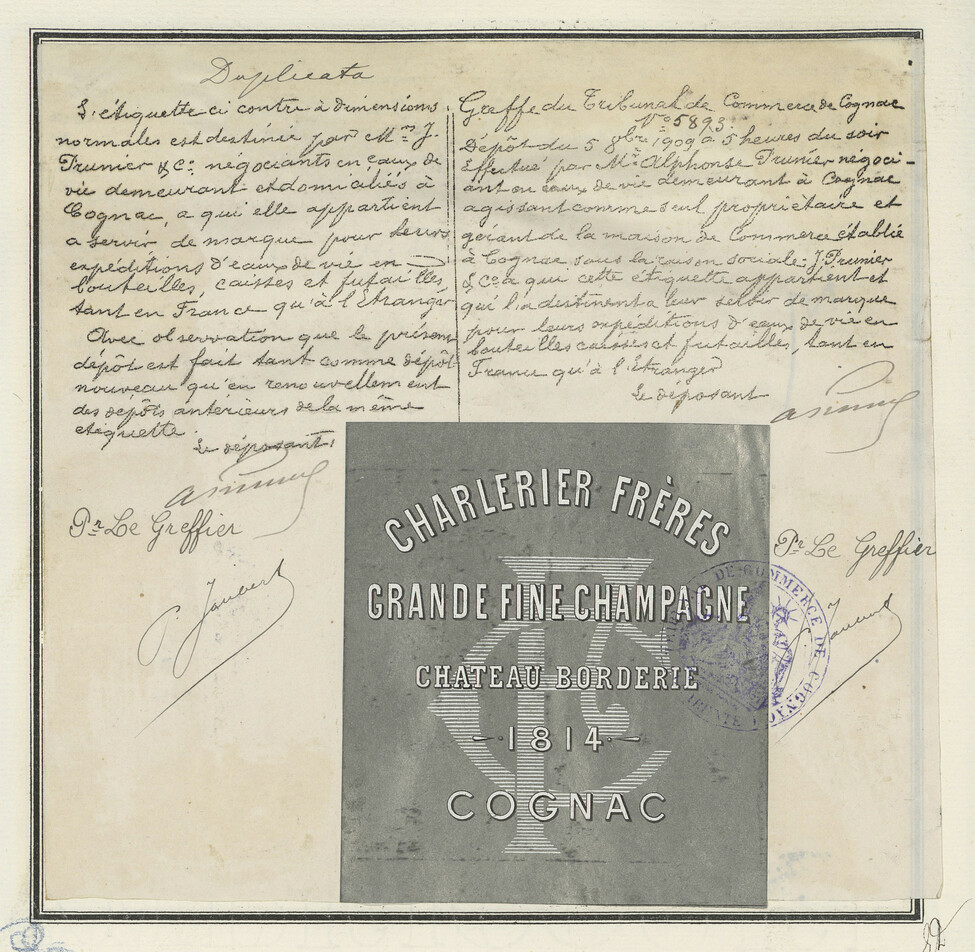 Duplicata
L'étiquette ci contre à dimensions
normales est destinée par MMrs J.
Prunier & Cie négociants en eaux de
vie demeurant et domiciliés à
Cognac, a qui elle appartient
a servir de marque pour leurs
expéditions d'eaux de vie en
bouteilles, caisses et futailles,
tant en France qu'à l'Etranger
Avec observation que le présent
dépôt est fait tant comme dépôt
nouveau qu'en renouvellement
des dépôts antérieurs de la même
etiquette.
Le déposant:
Pr Le Greffier
Greffe du Tribunal de Commerce de Cognac
No 5893.
Dépôt du 5 8bre 1909 à 5 heures du soir
effectué par Mr Alphonse Prunier négoci-
ant en eaux de vie demeurant à Cognac
agissant comme seul propriétaire et
gérant de la maison de Commerce établie
à Cognac sous la raison sociale: J. Prunier
& Cie a qui cette étiquette appartient et
qui l'a destinent a leur servir de marque
pour leurs expéditions d'eaux de vie en
bouteilles caisses et futailles, tant en
France qu'à l'Etranger
Le déposant
Pr Le Greffier
CHARLERIER FRÈRES
GRANDE FINE CHAMPAGNE
CHATEAU BORDERIE
1814
COGNAC
DE COMMERCE DE COGNAC